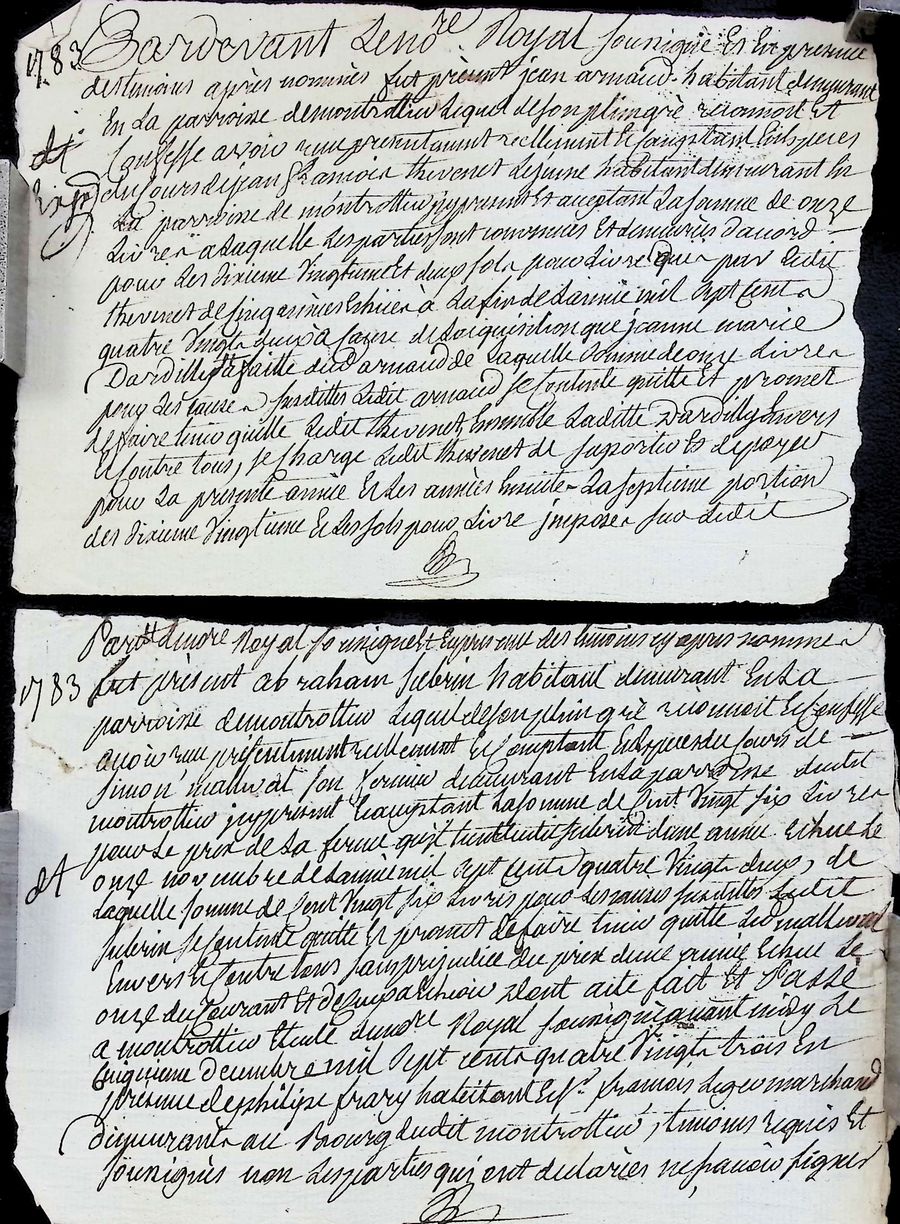 1783
Pardevant Le no.re Royal soussigné Et En presence
des temoins après nommés fut présent jean arnaud habitant demeurant
En La parroisse de montrottier Lequel de son plein gré reconnoit Et
Confesse avoir reçu presentement reellement Et Comptant En Especes
du Cours de jean françois thevenet Le jeune habitant demeurant En
La parroisse de montrottier jcy present Et acceptant La somme de onze
Livres a Laquelle Les parties sont convenues Et demeurées dacord
pour Les dixieme Vingtieme Et deux sols pour Livre par Ledit
thevenet de cinq années Echues à La fin de Lannée mil sept cents
quatre Vingts deux à Cause de Lacquisition que jeanne marie
Dardilly a faitte dud arnaud de Laquelle somme de onze Livres
pour Les causes susdittes Ledit arnaud se Contente quitte Et promet
de faire tenir quitte Ledit thevenet, Ensemble Laditte Dardilly Envers
Et Contre tous, se Charge Ledit thevenet de suporter Et de payer
pour La presente année Et Les années Ensuite La septieme portion
des dixieme Vingtieme Et Les sols pour Livre jmposés sur Ledit
1783
Par.dt Le no.re Royal soussigné Et En presence des temoins cy apres nommés
fut présent abraham suberin habitant demeurant En La
parroisse de montrottier Lequel de son plein gré reconnoit Et Confesse
avoir reçu présentement reellement Et Comptant En Especes du Cours de
simon mallaval son fermier demeurant En La parroisse dudit
montrottier jcy present Et acceptant La somme de Cent Vingt six Livres
pour Le prix de La ferme qu'il tient dudit suberin d'une année Echue Le
onze novembre de Lannée mil sept cents quatre Vingts deux, de
Laquelle somme de Cent Vingt six Livres pour Les causes susdittes Ledit
suberin se Contente quitte Et promet de faire tenir quitte Led mallaval
Envers Et Contre tous sans prejudice du prix d'une année Echue Le
onze du Courant Et de ceux a Echeoir Dont acte fait Et Passé
a montrottier Etude du no.re Royal soussigné avant midy Le
Cinquieme decembre mil sept cents quatre Vingts trois En
presence de philipe frary habitant Et s.r françois Legeo marchand
demeurants au Bourg dudit montrottier, temoins requis Et
soussignés non Les parties qui ont declarées ne sçavoir signer